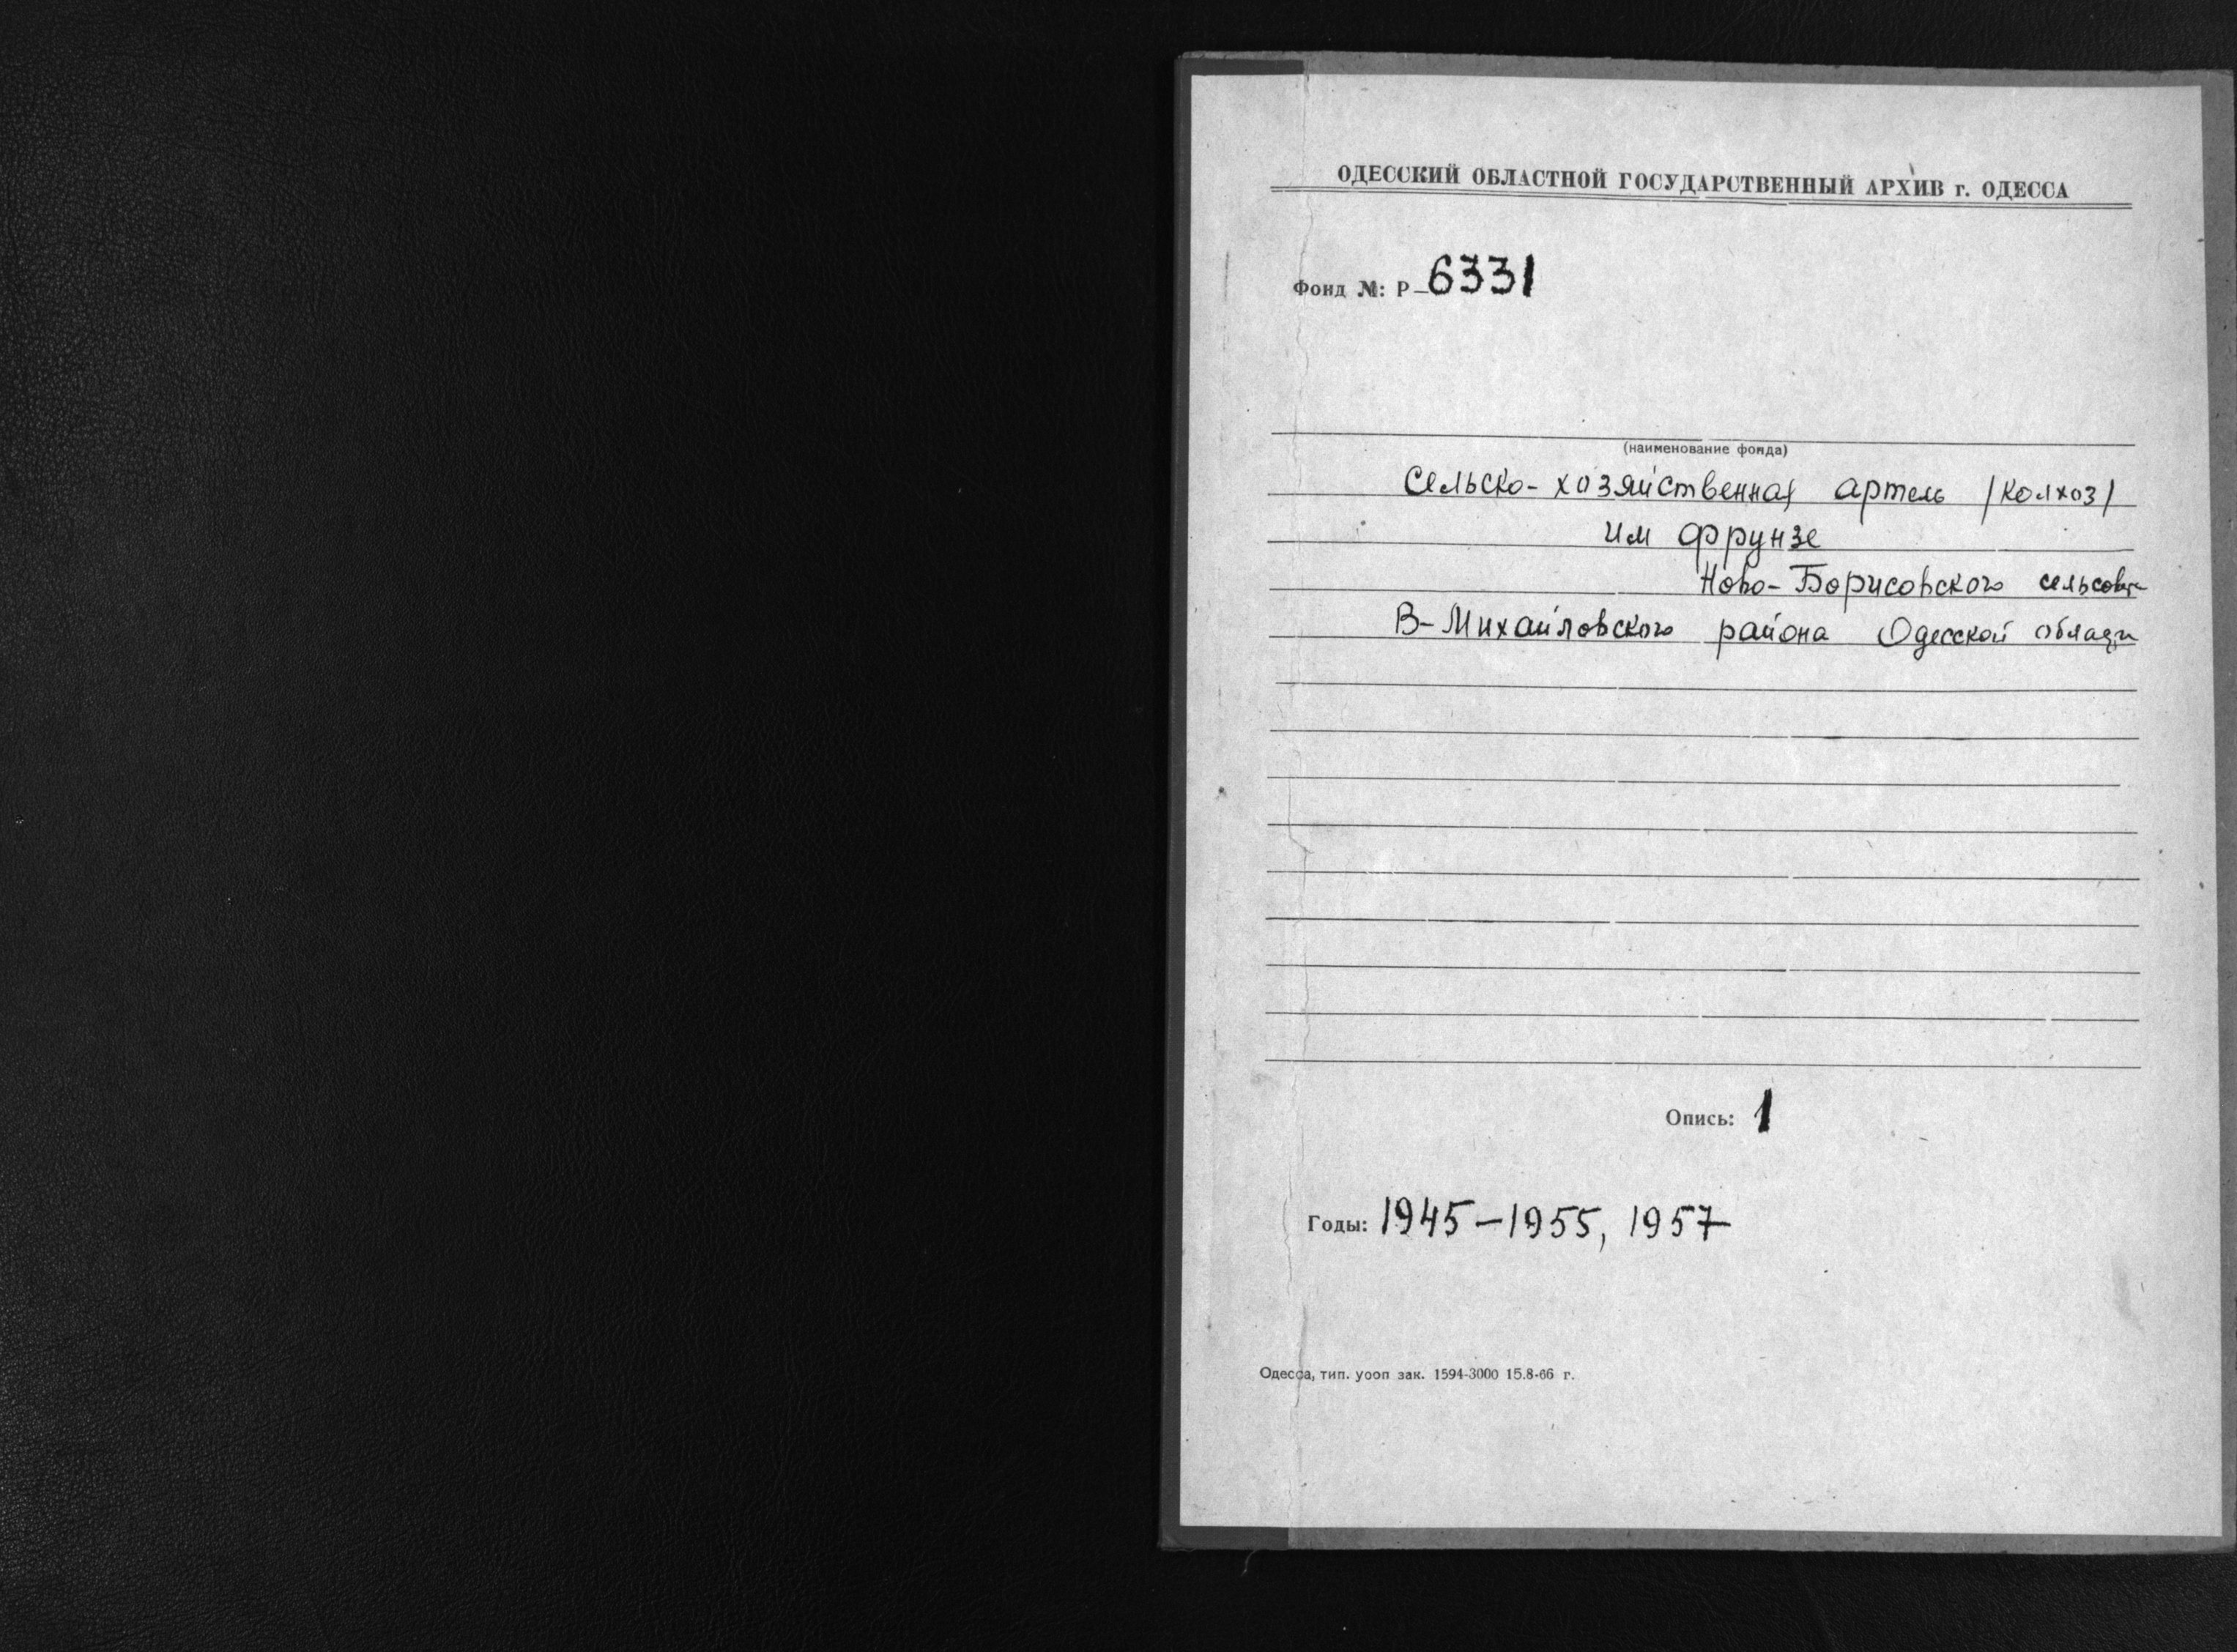 ОДЕССКИЙ ОБЛАСТНОЙ ГОСУДАРСТВЕННЫЙ АРХИВ г. ОДЕССА
Фонд №: Р-6331
(наименование фонда)
Сельско-хозяйственная артель /колхоз/
им Фрунзе
Ново-Борисовского сельсовета
В-Михайловского района Одесской области
Опись: 1
Годы: 1945-1955, 1957
Одесса, тип. уооп зак. 1594-3000 15.8-66 г.